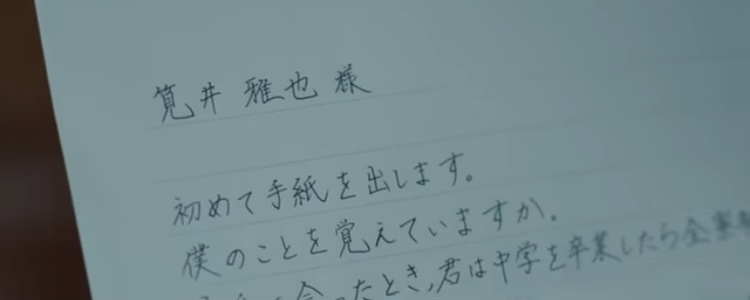 筧井 雅也 様
初めて手紙を出します。
僕のことを覚えていますか。
会ったとき、君は中学を卒業したら全寮